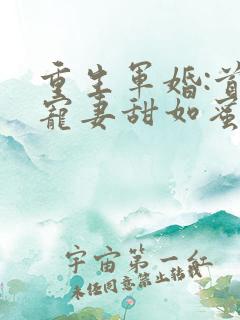 重生軍婚:首
寵妻甜如蜜
宇宙第一紅
未经同意禁止转载